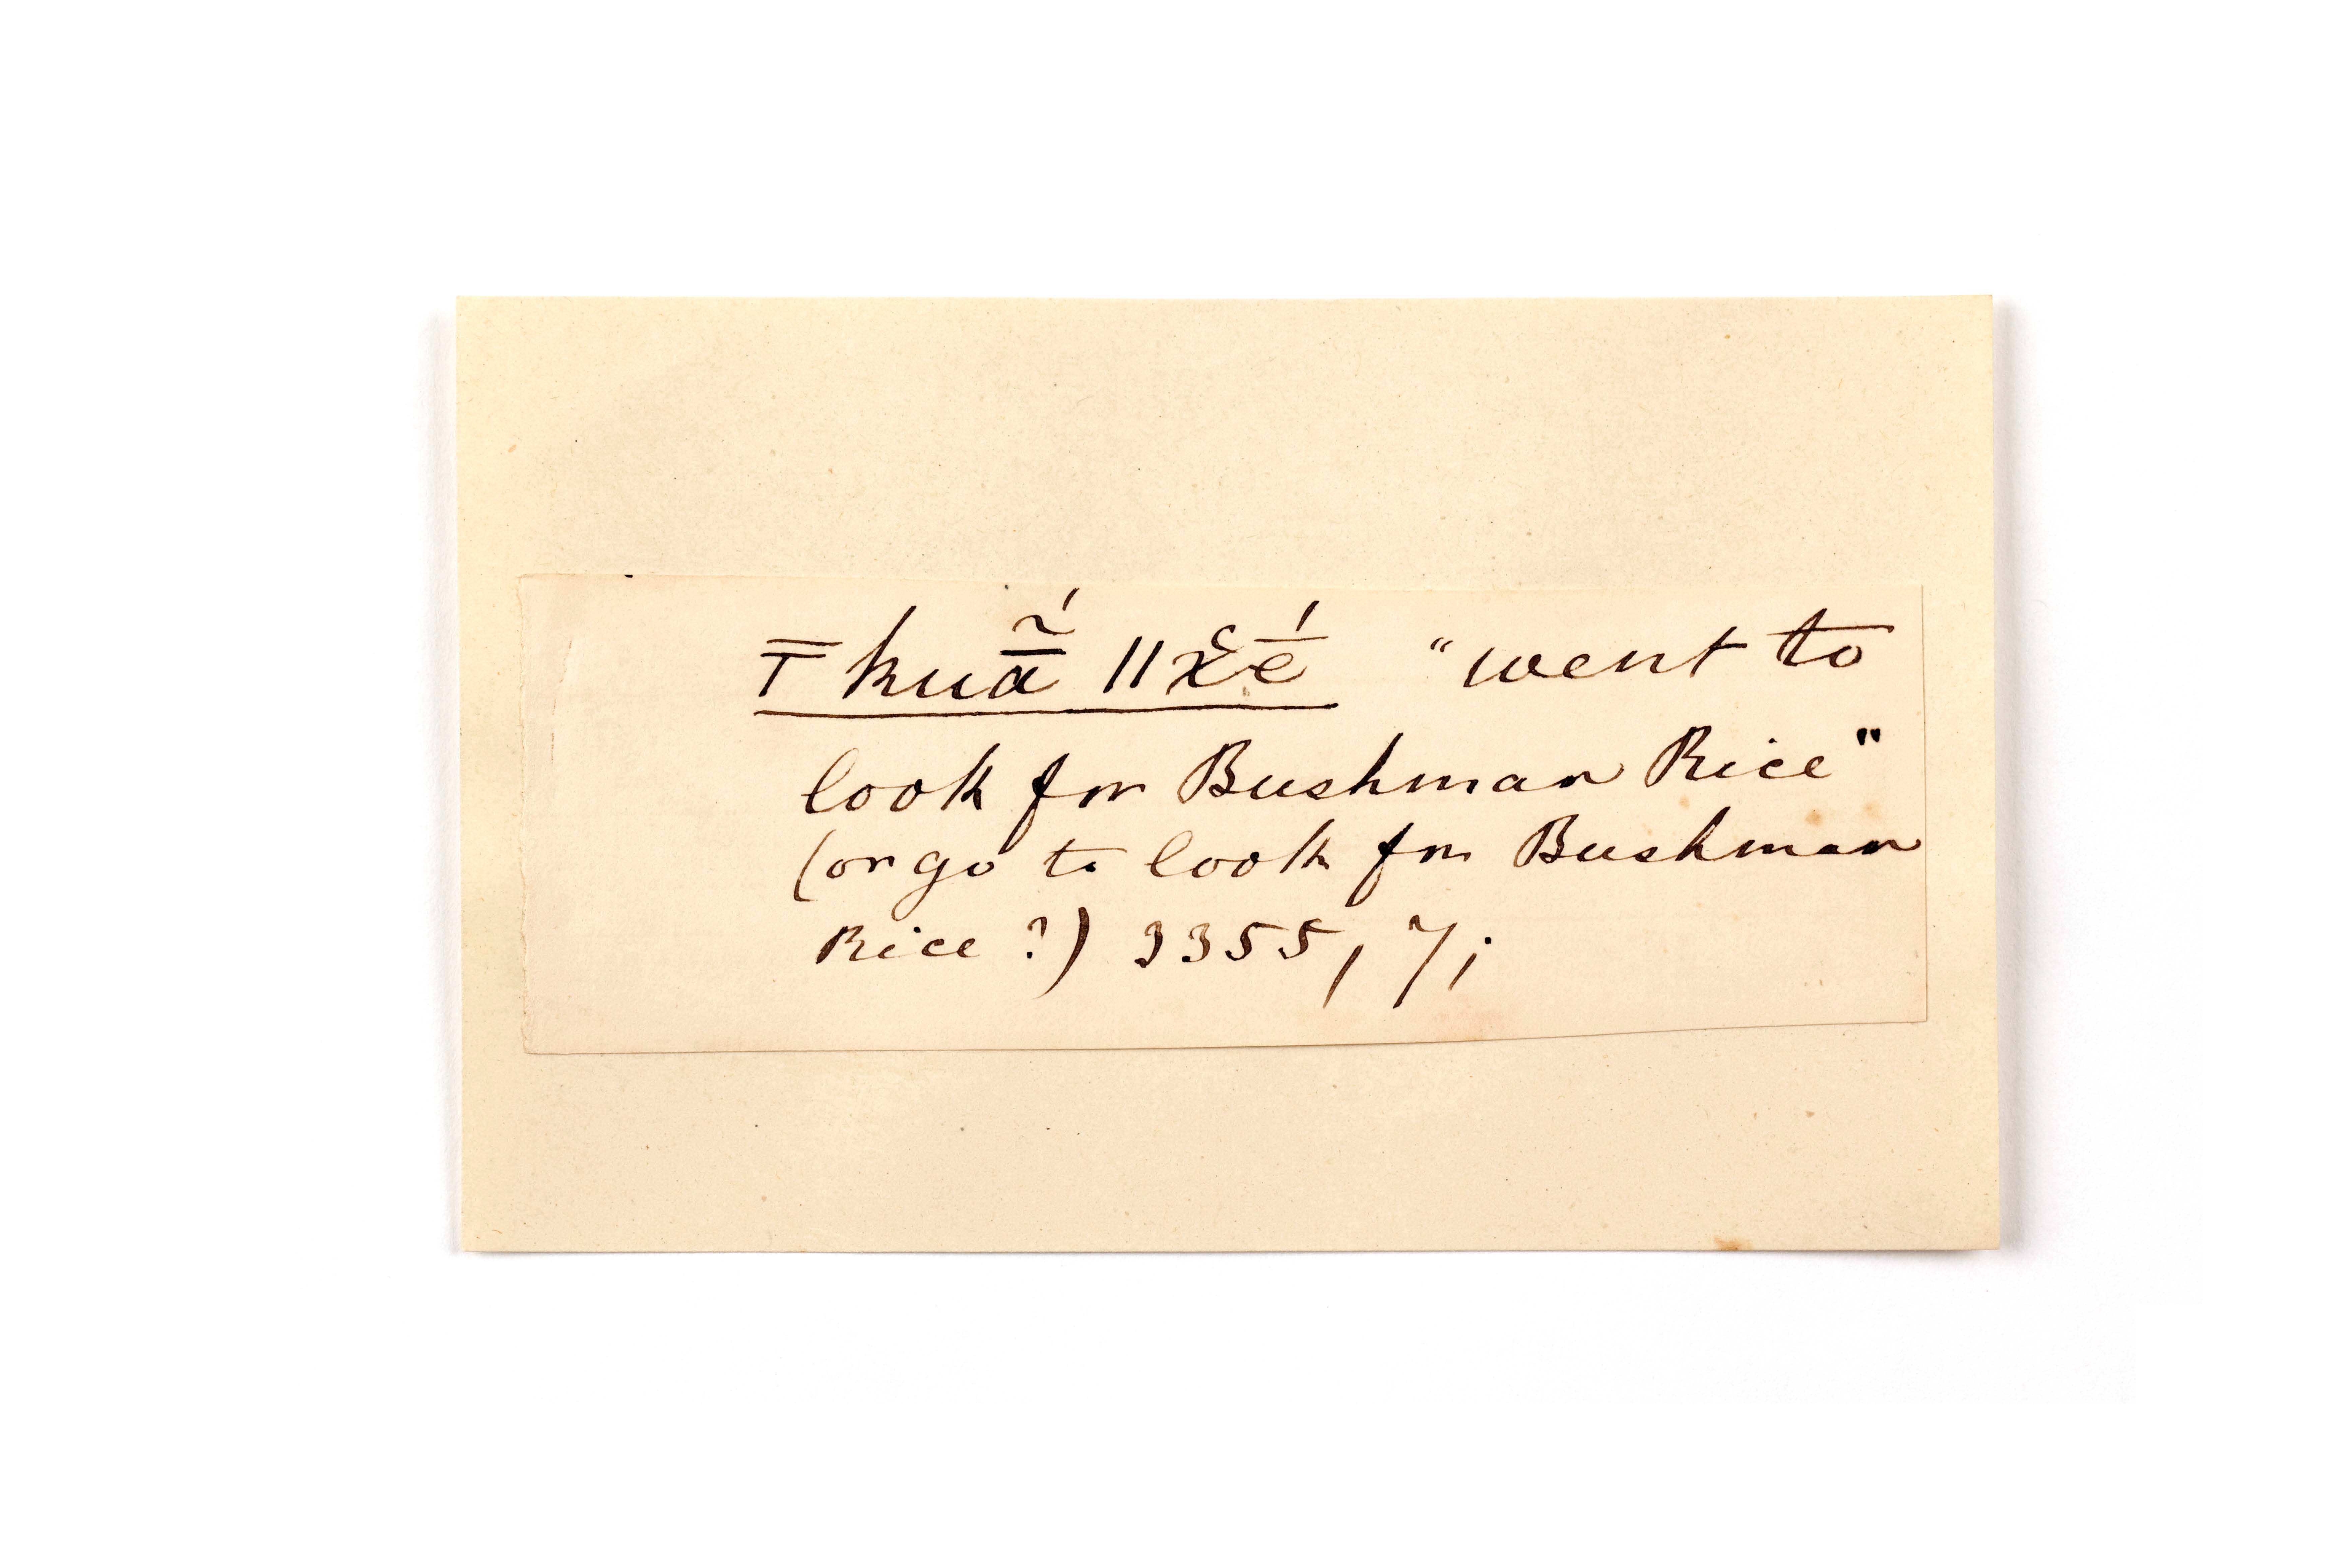 Ʇkuã̱́ ǁχʿḗ "went to
look for Bushman Rice"
(or go to look for Bushman
Rice?) 3355, 7;